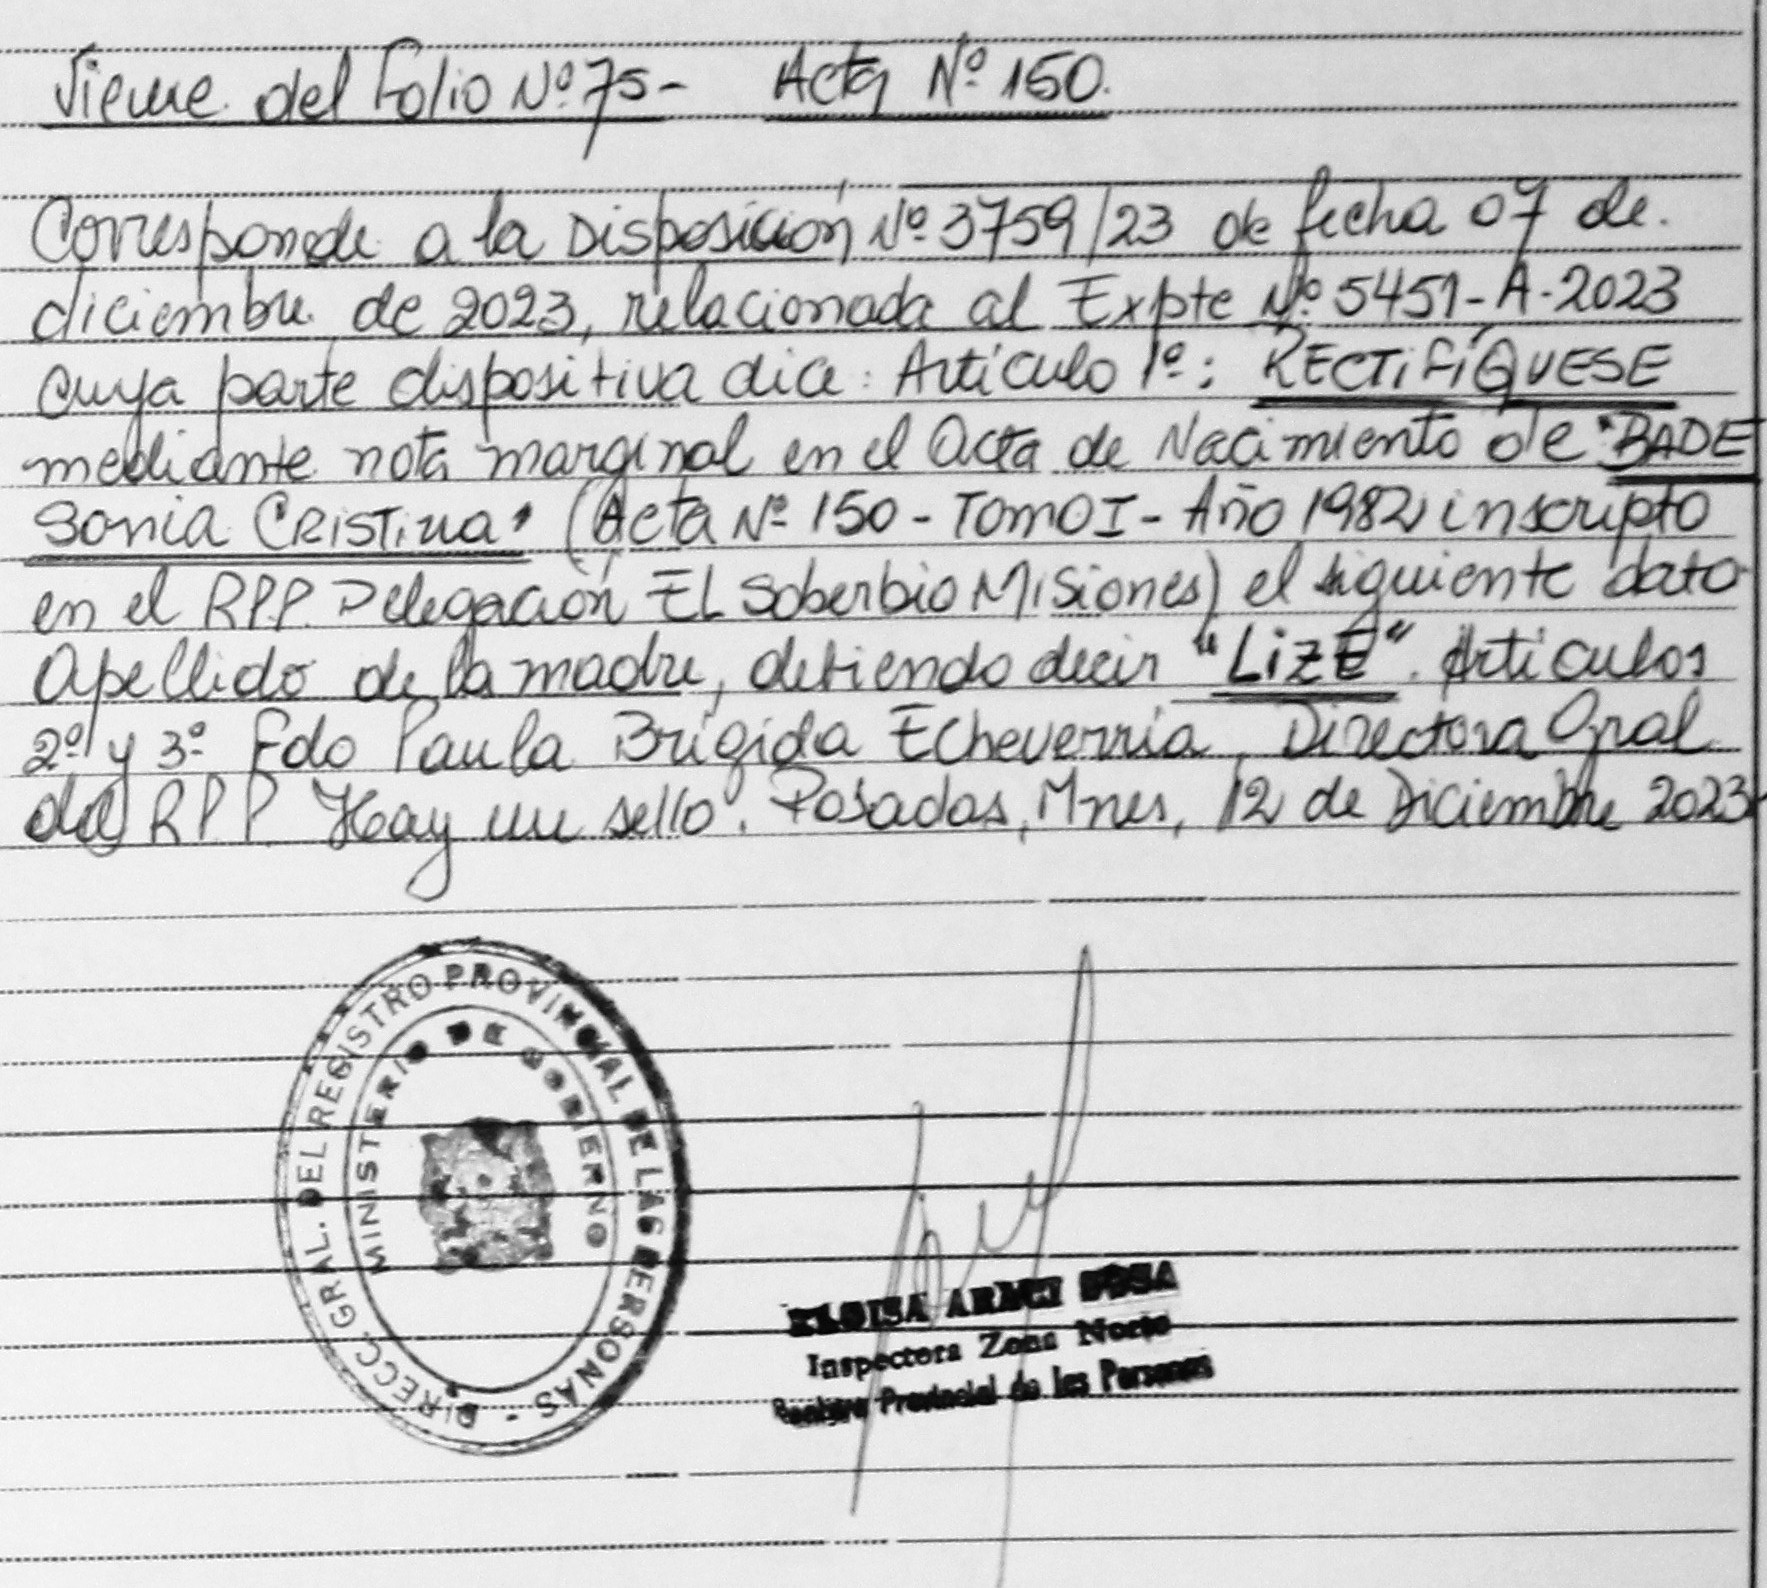 Viene del Folio Nº 75- Acta Nº 150.
Corresponde a la Disposición Nº 3759/23 de fecha 07 de.
diciembre de 2023, relacionada al Expte Nº 5451-A-2023
cuya parte dispositiva dice: Artículo 1º: RECTIFÍQUESE
mediante nota marginal en el Acta de Nacimiento de "BADE
SONIA CRISTINA" (Acta Nº 150 - TOMO I - Año 1982 inscripto
en el R.P.P. Delegación EL Soberbio Misiones) el siguiente dato
Apellido de la madre, debiendo decir "LIZE". Artículos
2º y 3º Fdo Paula Brígida Echeverria, Directora Gral
del RPP. Hay un sello. Posadas, Mnes, 12 de Diciembre 2023
DIRECC. GRAL. DEL REGISTRO PROVINCIAL DE LAS PERSONAS -
MINISTERIO DE GOBIERNO
ELOISA ARECI SOSA
Inspectora Zona Norte
Registro Provincial de las Personas